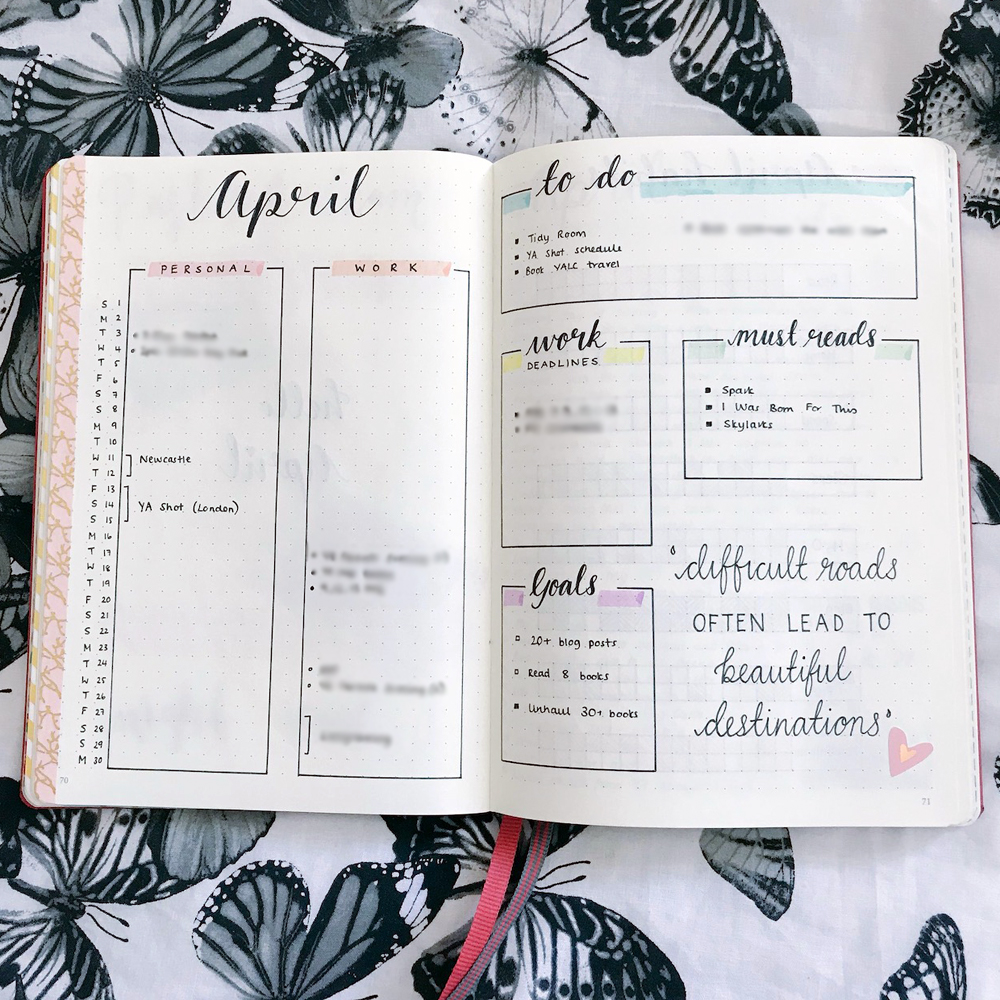 April
PERSONAL
WORK
S 1
M 2
T 3
W 4
T 5
F 6
S 7
S 8
M 9
T 10
W 11
Newcastle
T 12
F 13
S 14
YA Shot (London)
S 15
M 16
T 17
W 18
T 19
F 20
S 21
S 22
M 23
T 24
W 25
T 26
F 27
S 28
S 29
M 30
70
to do
Tidy Room
YA Shot schedule
Book YALC travel
work
DEADLINES
must reads
Spark
I Was Born For This
Skylarks
Goals
20+ blog posts
Read 8 books
Unhaul 30+ books
'difficult roads
OFTEN LEAD TO
beautiful
destinations'
71